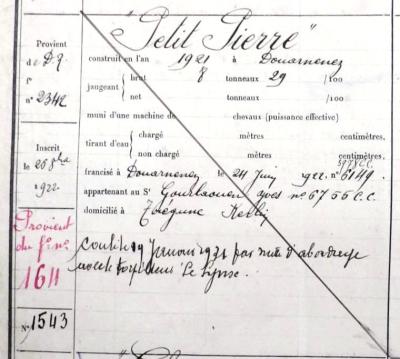 "Petit Pierre"
Provient
de Dz
f°
n° 2342
construit en l'an 1921 à Douarnenez
jaugeant brut 8 tonneaux 29 /100
net tonneaux /100
muni d'une machine de chevaux (puissance effective)
tirant d'eau chargé mètres centimètres.
non chargé mètres centimètres.
Inscrit
le 26
1922
francisé à Douarnenez le 24 1922 n° 6149
appartenant au St n° 6756 C.C.
domicilié à Tréguné
Provient
du f° n°
1611
coulé le 19 Janvier 1931 par suite d'abordage
avec le torpilleur Le Lynse.
N° 1543